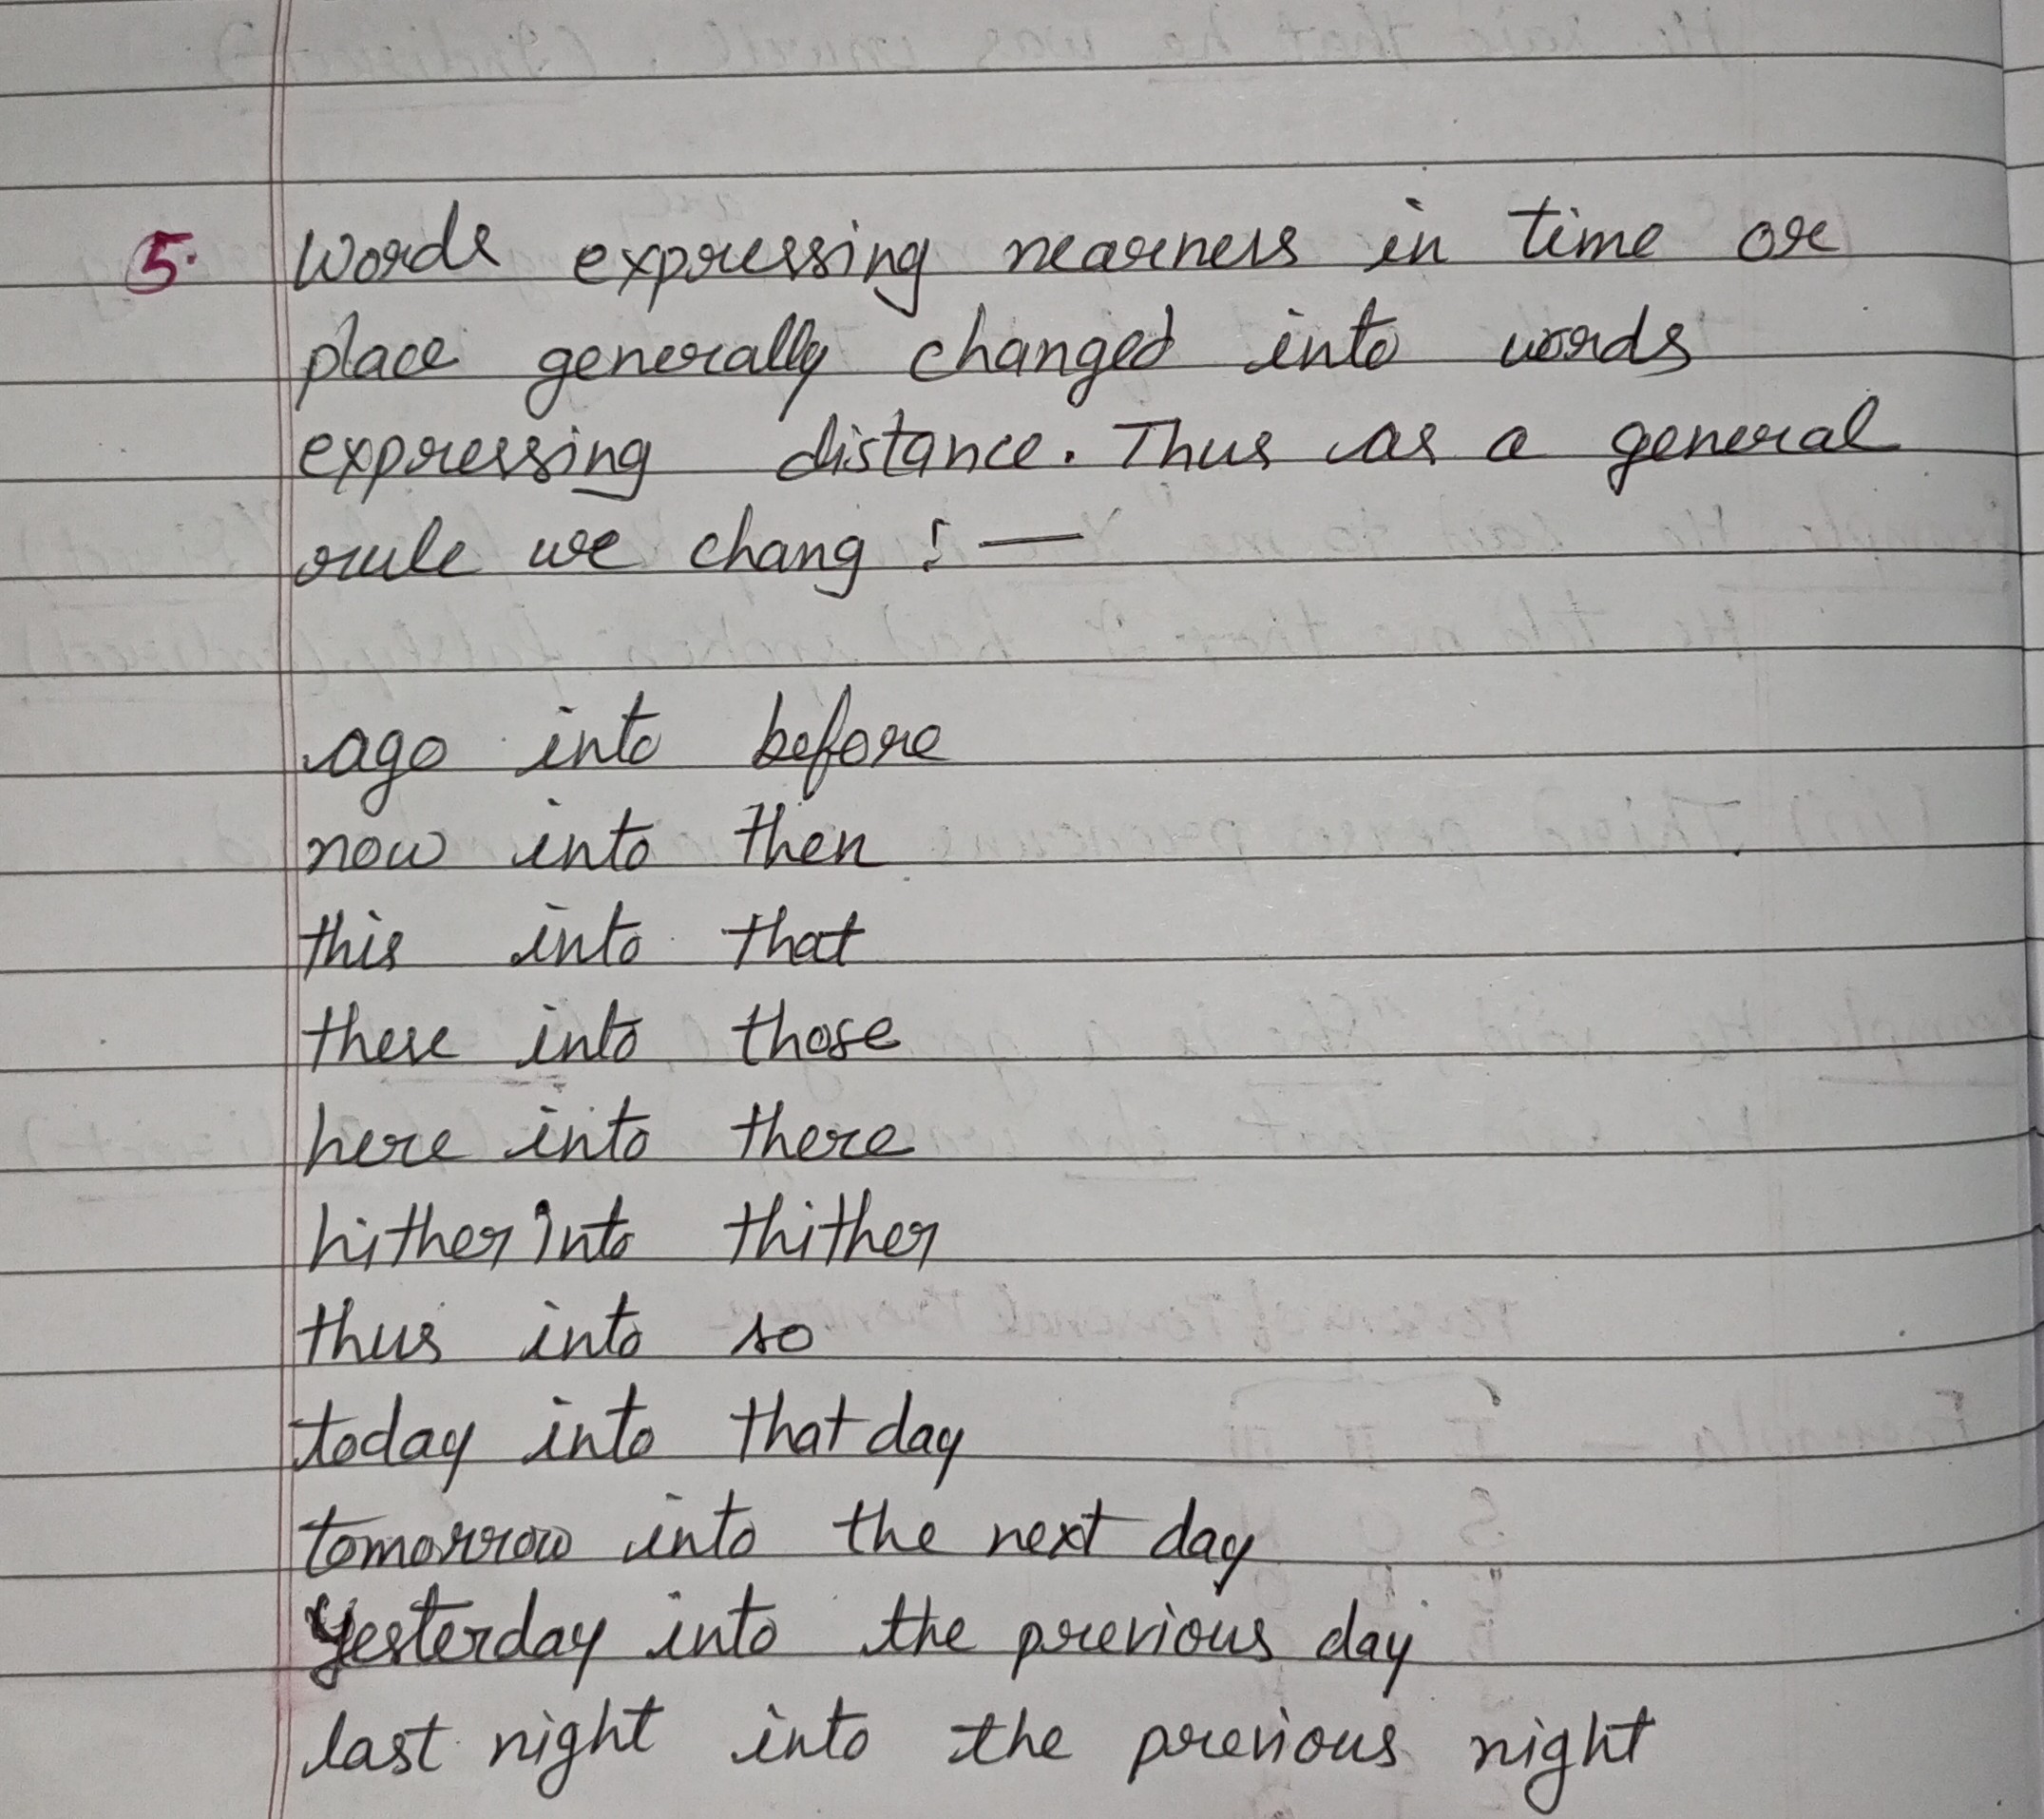 5. Words expressing nearness in time or
place generally changed into words
expressing distance. Thus as a general
rule we chang :—
ago into before
now into then
this into that
these into those
here into there
hither into thither
thus into so
today into that day
tomorrow into the next day
Yesterday into the previous day
last night into the previous night